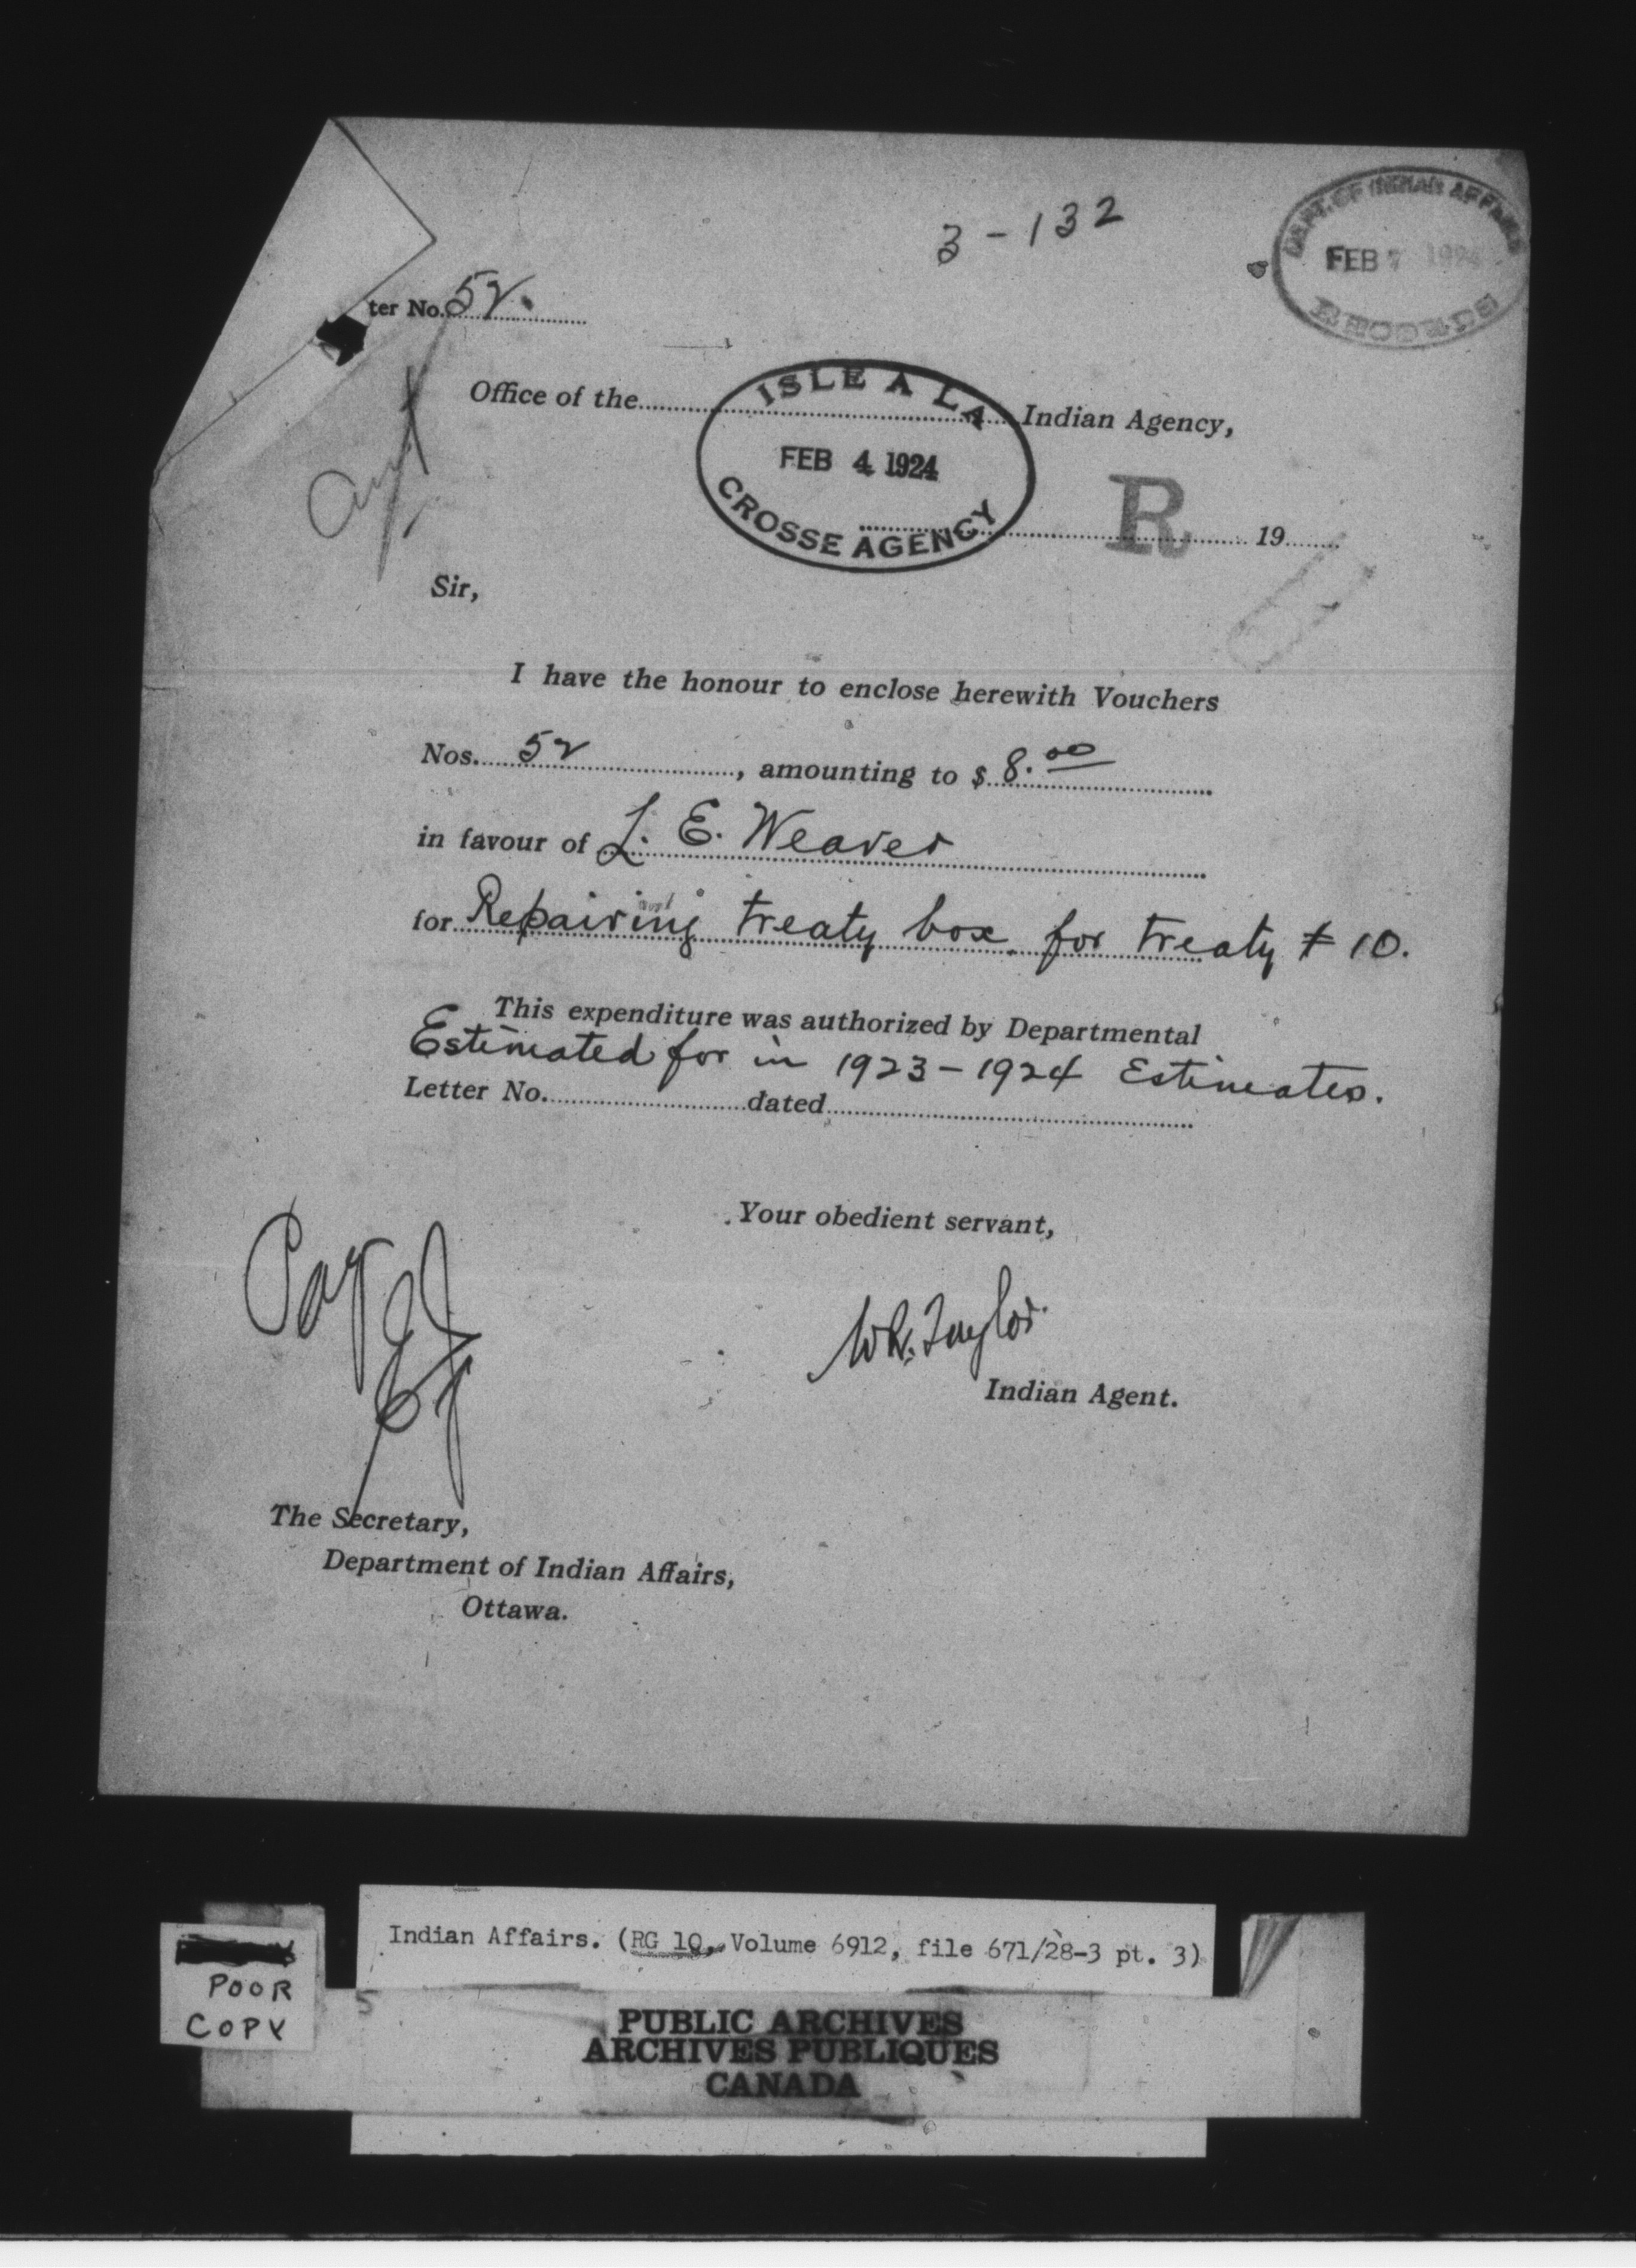 3-132
DEPT. OF INDIAN AFFAIRS
FEB 7 1924
ter No. 52.
Office of the Indian Agency,
ISLE A LA
FEB 4 1924
CROSSE AGENCY
R
19
Sir,
I have the honour to enclose herewith Vouchers
Nos. 52, amounting to $ 8.00
in favour of L. E. Weaver
for Repairing treaty box for treaty # 10.
This expenditure was authorized by Departmental
Estimated for in 1923-1924 Estimates.
Letter No. dated
Your obedient servant,
Pay
W.R. Taylor
Indian Agent.
The Secretary,
Department of Indian Affairs,
Ottawa.
Indian Affairs. (RG 10, Volume 6912, file 671/28-3 pt. 3)
POOR
COPY
5
PUBLIC ARCHIVES
ARCHIVES PUBLIQUES
CANADA